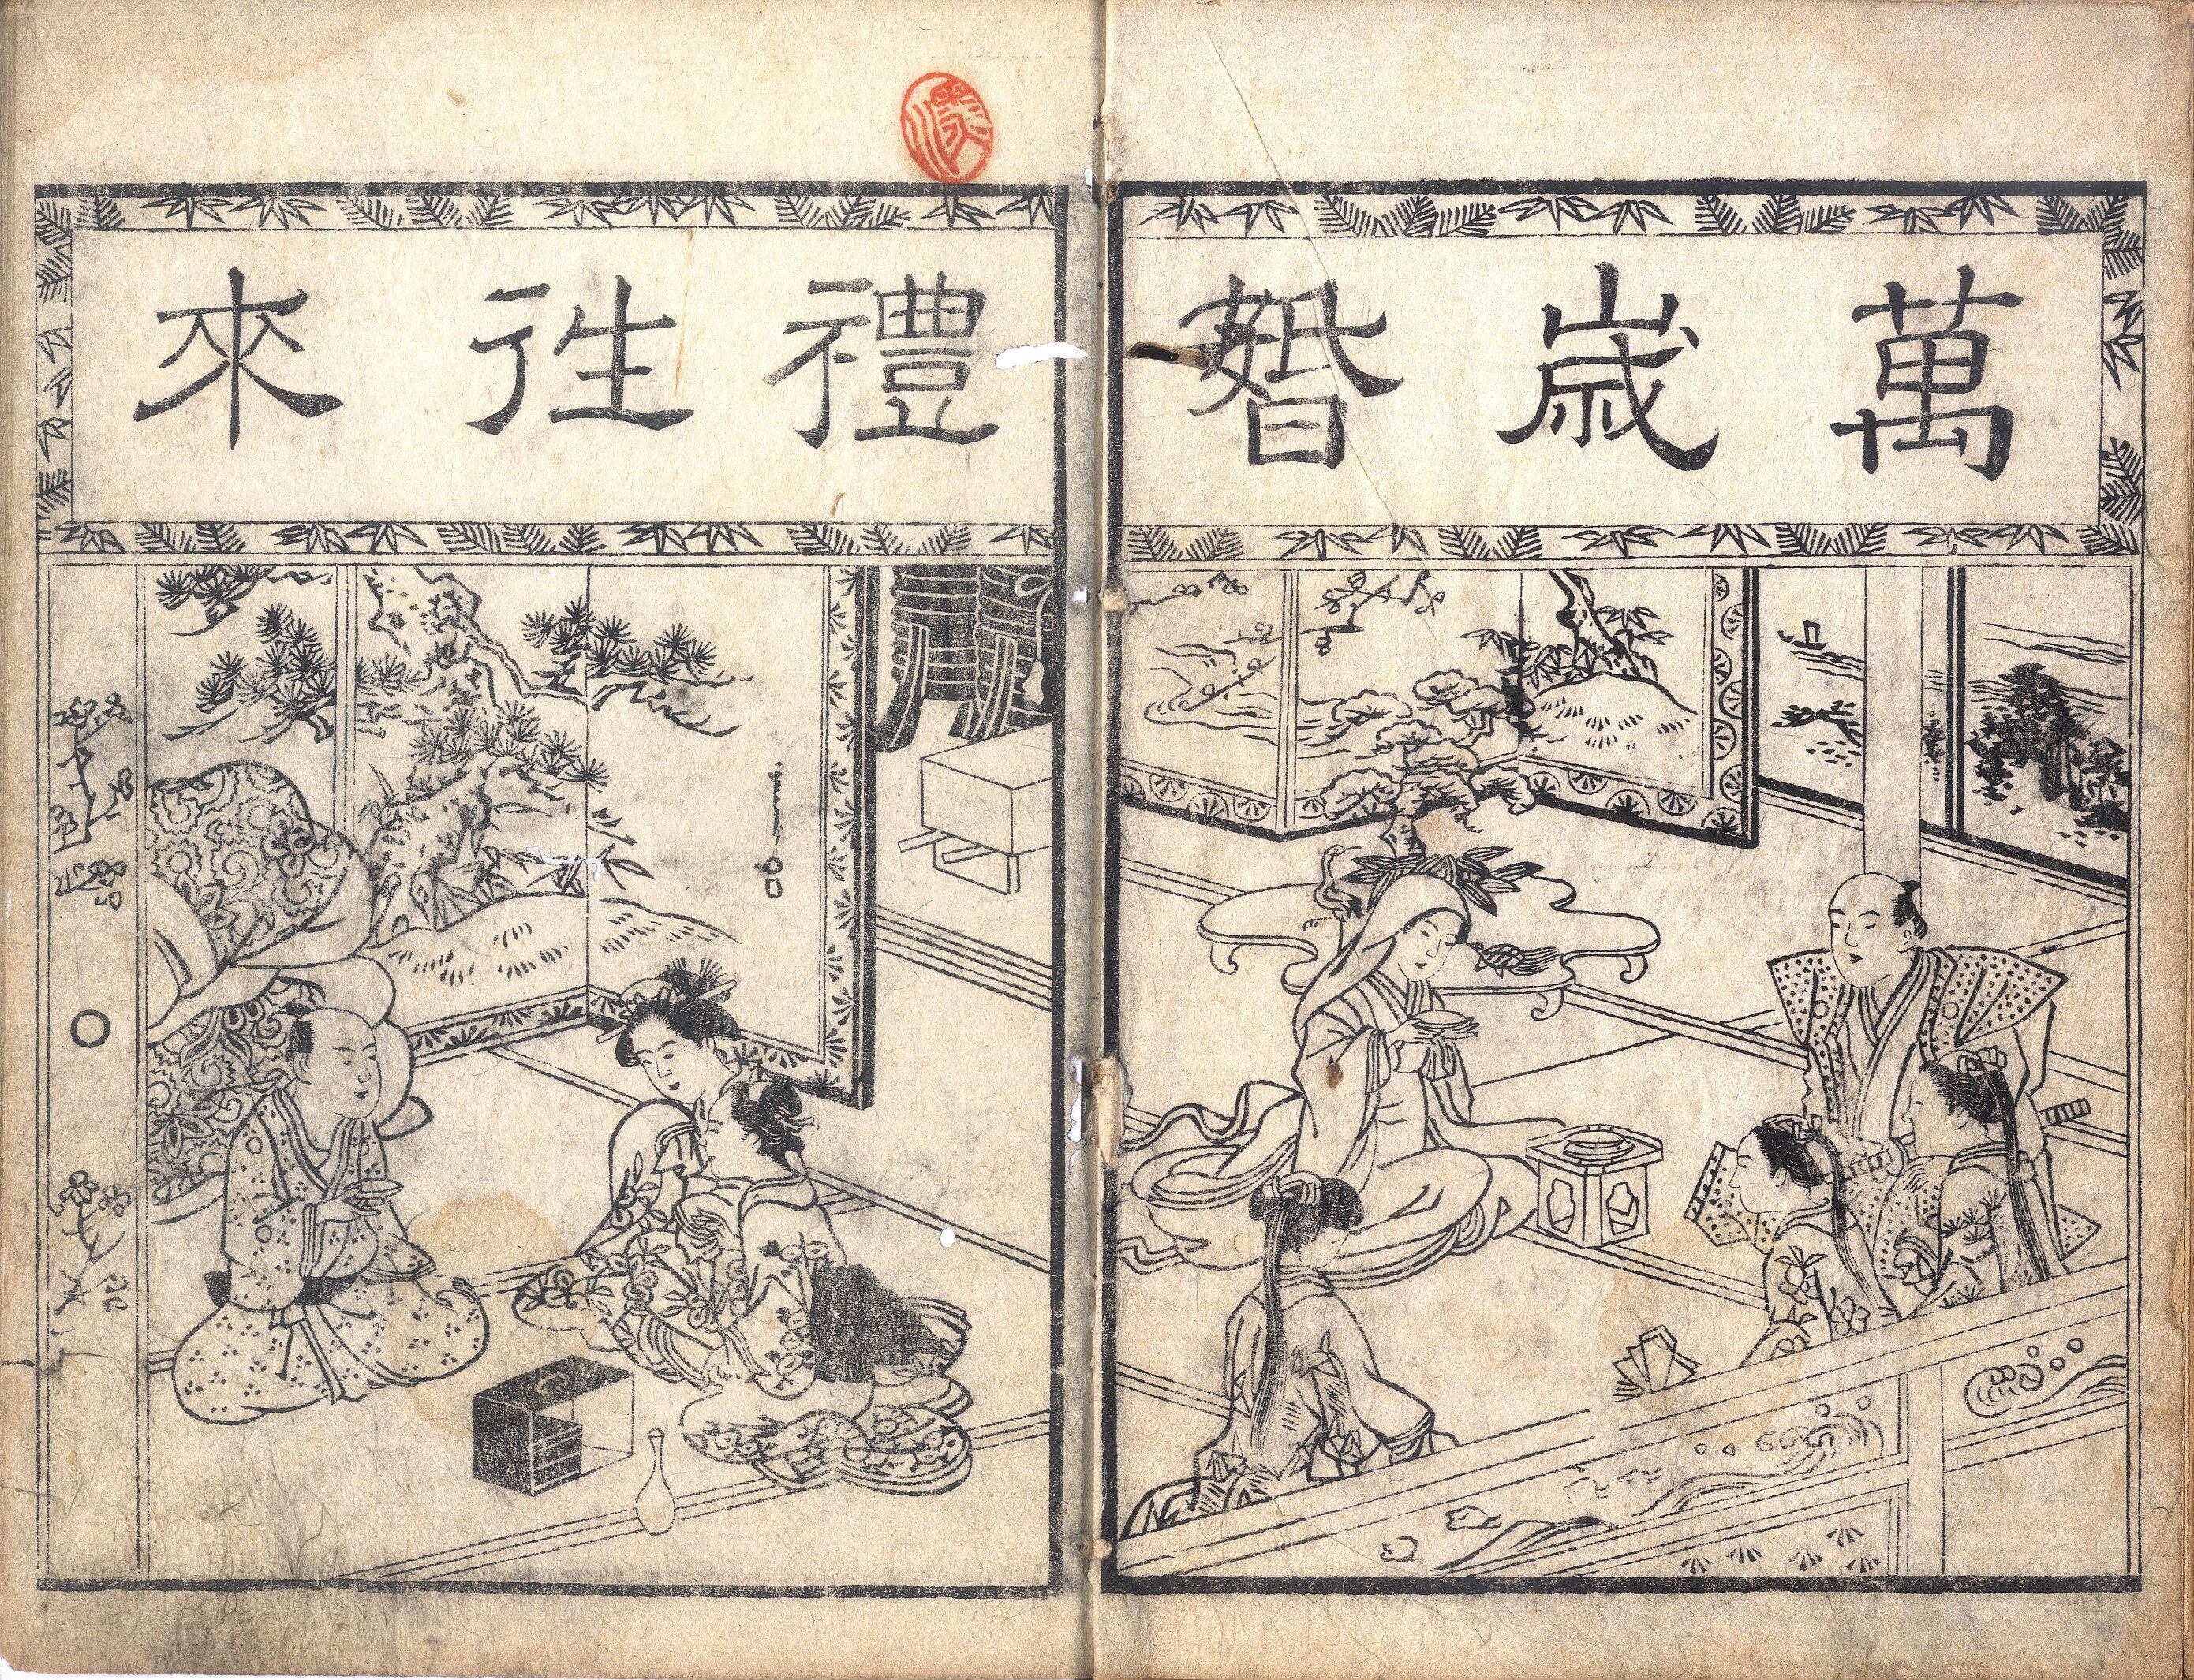 萬歳婚
禮徃來